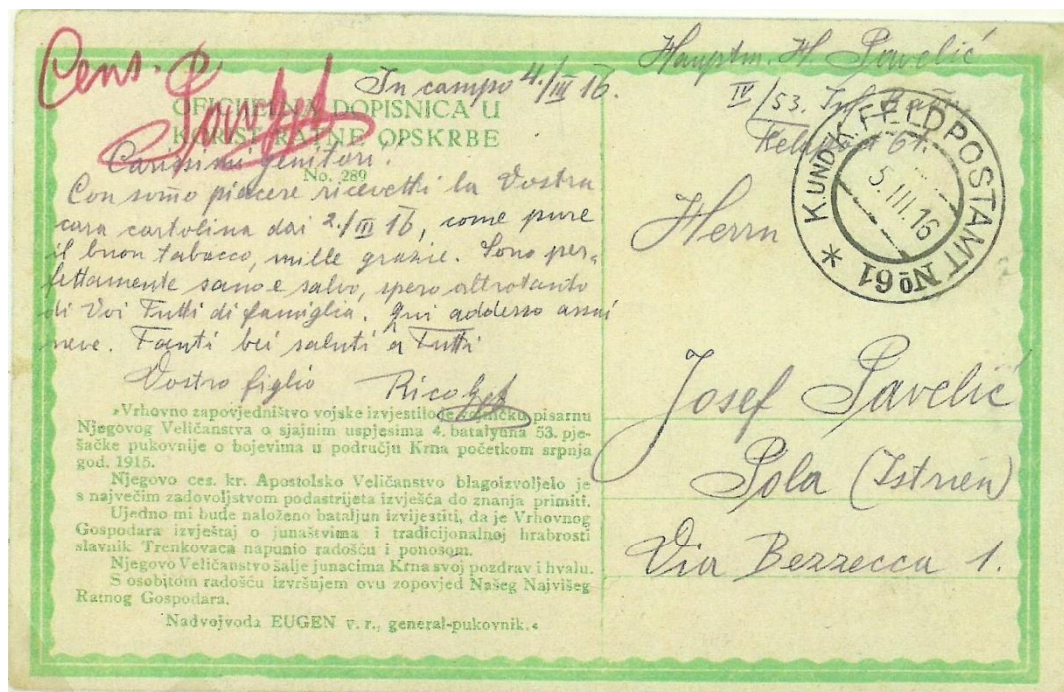 Cens.
In campo 4./III 16.
OFICIJELNA DOPISNICA U
KORIST RATNE OPSKRBE
No. 289
Carissimi genitori!
Con somo piacere ricevetti la Vostra
cara cartolina dai 2./III 16, come pure
il buon tabacco, mille grazie. Sono per-
fettamente sano e salvo, spero altrotanto
di Voi Tutti di famiglia. Qui addesso assai
neve. Tanti bei saluti a Tutti
Vostro figlio Rico
»Vrhovno zapovjedništvo vojske izvjestilo je vojničku pisarnu
Njegovog Veličanstva o sjajnim uspjesima 4. bataljuna 53. pje-
šačke pukovnije o bojevima u području Krna početkom srpnja
god. 1915.
Njegovo ces. kr. Apostolsko Veličanstvo blagoizvoljelo je
s najvećim zadovoljstvom podastrijeta izvješća do znanja primiti.
Ujedno mi bude naloženo bataljun izvijestiti, da je Vrhovnog
Gospodara izvještaj o junaštvima i tradicijonalnoj hrabrosti
slavnik Trenkovaca napunio radošću i ponosom.
Njegovo Veličanstvo šalje junacima Krna svoj pozdrav i hvalu.
S osobitom radošću izvršujem ovu zopovjed Našeg Najvišeg
Ratnog Gospodara.
Nadvojvoda EUGEN v. r., general-pukovnik.«
Hauptm. H. Pavelić
IV/53. Inf. Baon
61.
K. UND K. FELDPOSTAMT No 61 *
5.III.16
Herrn
Josef Pavelić
Pola (Istrien)
Via Bezzecca 1.